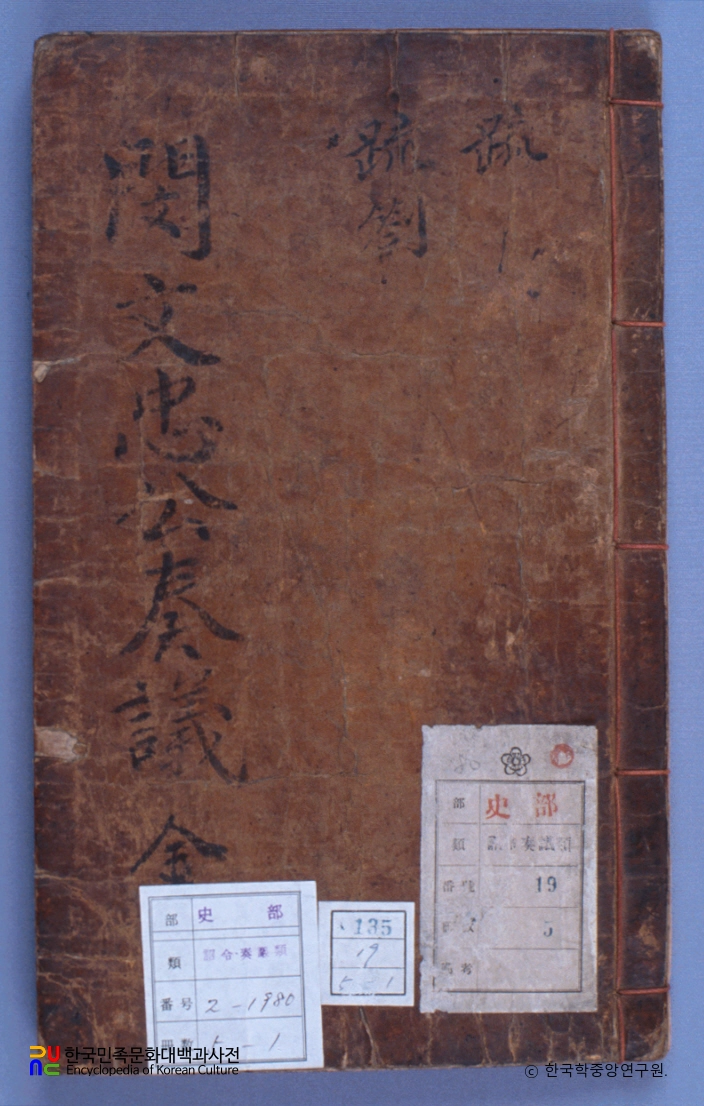 疏
疏箚
閔文忠公奏議 金
部 史部
類 詔令奏議類
番號 19
冊數 5
備考
部 史部
類 詔令·奏議類
番号 2-1980
冊數 5-1
135
19
5-1
한국민족문화대백과사전
Encyclopedia of Korean Culture
© 한국학중앙연구원.